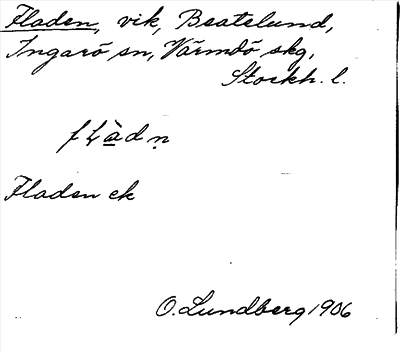 Fladen, vik, Beatelund,
Ingarö sn, Värmdö skg,
Stockh. l.
fḷàdṇ
Fladen ek
O. Lundberg 1906